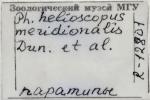 Зоологический музей МГУ
Ph. helioscopus
meridionalis
Dun. et al.
паратипы
R-12801